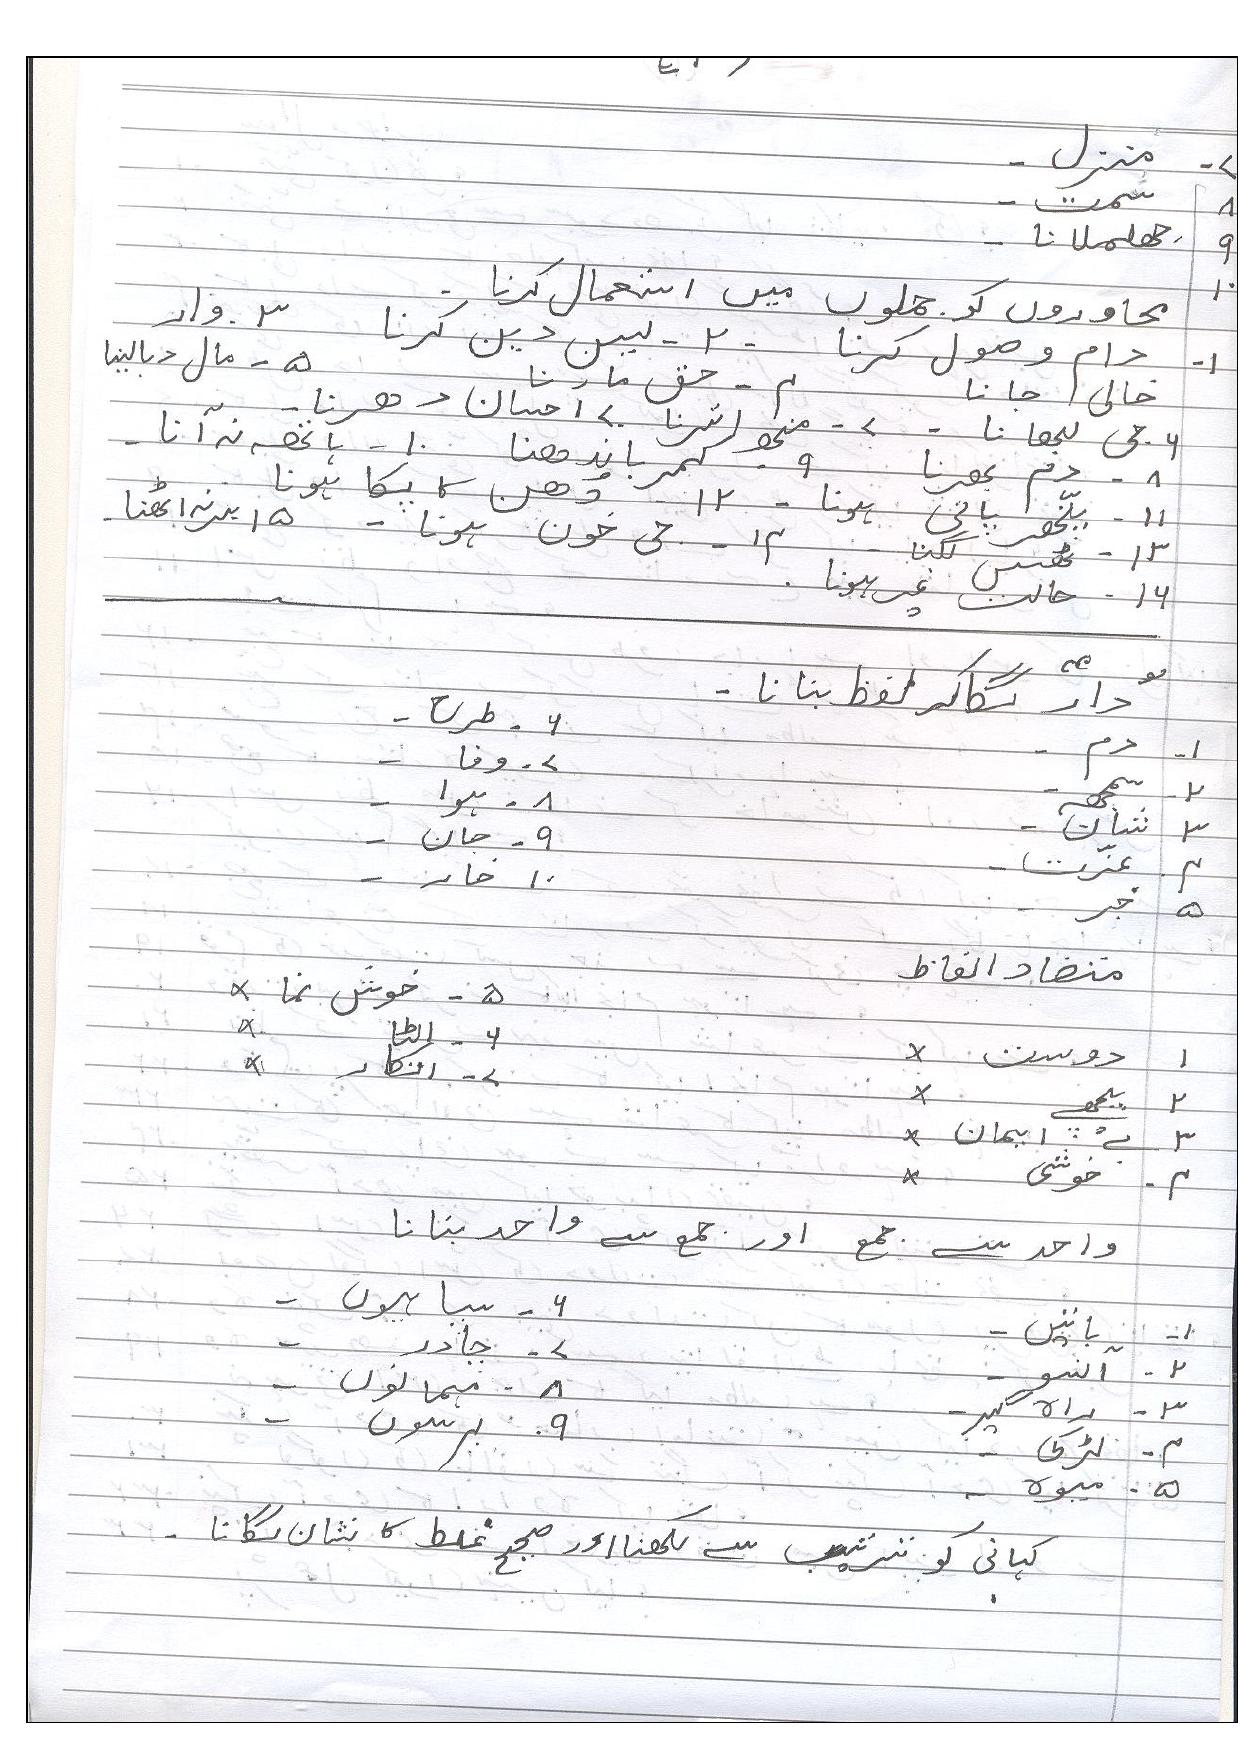 ۷- منزل -
۸ سمت -
۹ جھلملانا -
۱۰
محاوروں کو جملوں میں استعمال کرنا -
۱- دام وصول کرنا - ۲- لین دین کرنا ۳- وار
خالی جانا ۴- حق مارنا ۵- مال دبالینا
۶- جی لبھانا - ۷- منھ اترنا ۷ احسان دھرنا -
۸- دم بھرنا ۹- کمر باندھنا ۱۰- ہاتھ نہ آنا -
۱۱- پتّھر پانی ہونا - ۱۲- دُھن کا پکا ہونا
۱۳- ٹھیس لگنا - ۱۴- جی خون ہونا - ۱۵ پیر نہ اٹھنا
۱۶- حالت غیر ہونا -
"دار" لگاکر لفظ بنانا -
۱- دم - ۶- طرح -
۲- سمجھ - ۷- وفا -
۳ شان - ۸- ہوا -
۴- عزّت - ۹- جان -
۵ خبر - ۱۰ خار -
متضاد الفاظ
۱ دوست × ۵- خوش نما ×
۲ پیچھے × ۶- الٹا ×
۳ بے ایمان × ۷- انکار ×
۴- خوشی ×
واحد سے جمع اور جمع سے واحد بنانا
۱- باتیں - ۶- سپاہیوں -
۲- آنسو - ۷- چادر -
۳- راہ گیر - ۸- مہمانوں -
۴- لڑکی - ۹- برسوں -
۵- میوہ -
کہانی کو ترتیب سے لکھنا اور صحیح غلط کا نشان لگانا -